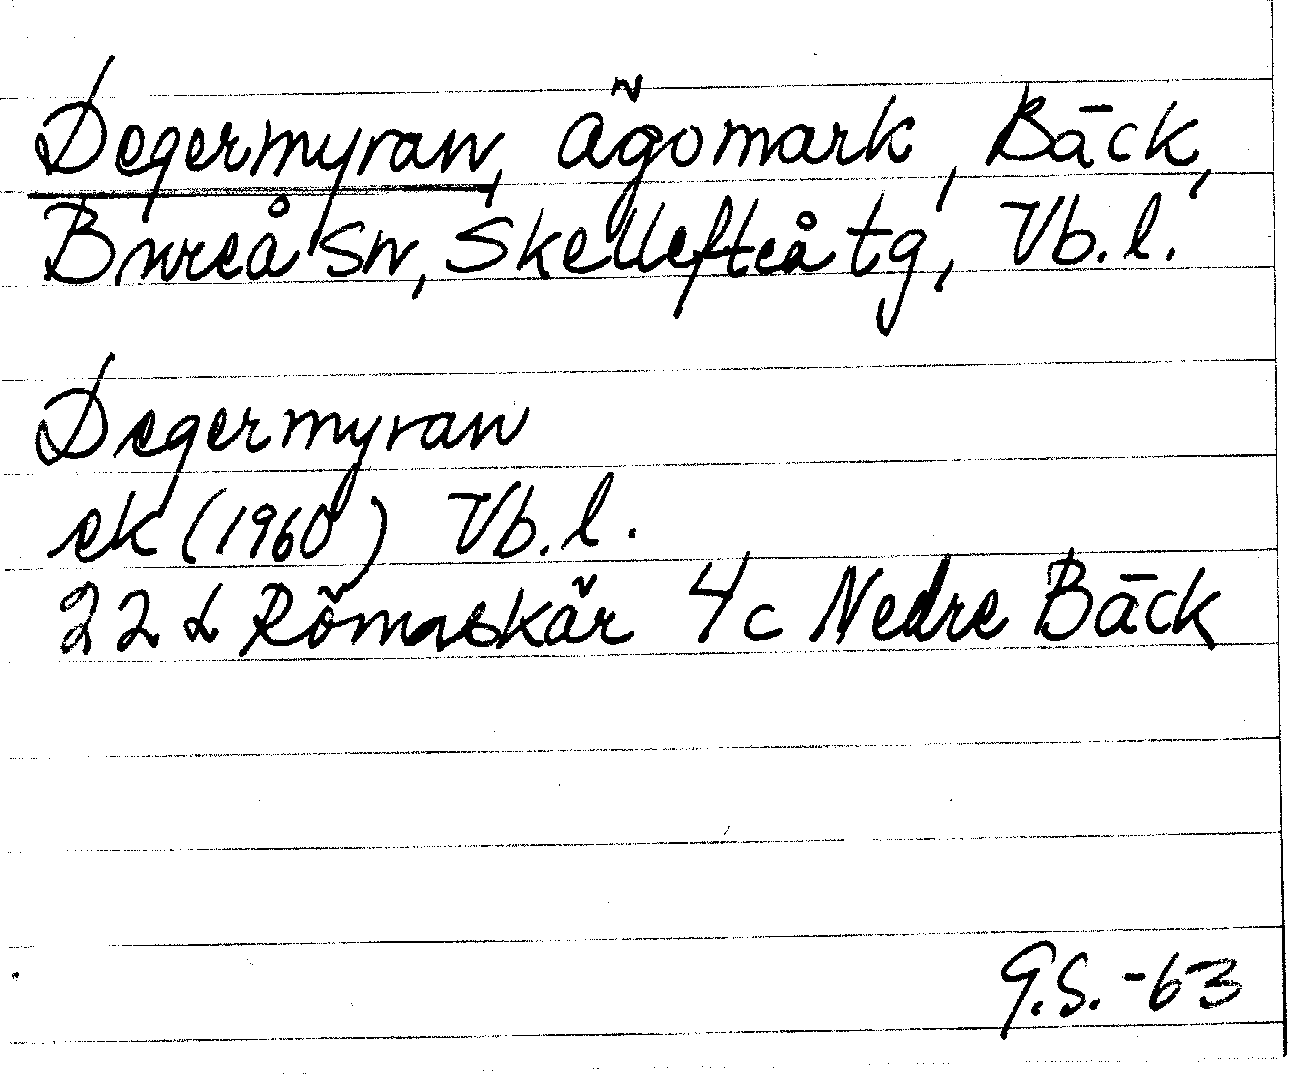 Degermyran, ägomark, Bäck,
Bureå sn, Skellefteå tg, Vb. l.
Degermyran
ek (1960) Vb. l.
22 L Rönnskär 4c Nedre Bäck
G.S. -63